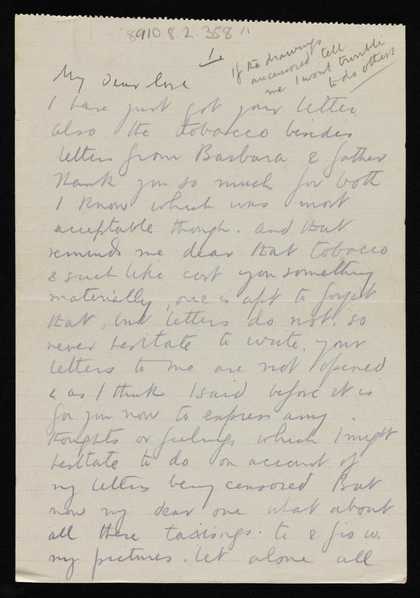 8910.8.2.358
1
If the drawings
uncensored tell
me I wont trouble
to do others
My dear love
I have just got your letter
also the tobacco besides
letters from Barbara & father
thank you so much for both
I know which was most
acceptable though. and that
reminds me dear that tobacco
& such like cost you something
materially, one is apt to forget
that, but letters do not. so
never hesitate to write. your
letters to me are not opened
& as I think I said before it is
for you now to express any
thoughts or feelings which I might
hesitate to do on account of
my letters being censored But
now my dear one what about
all these taxings. to &
my pictures. let alone all